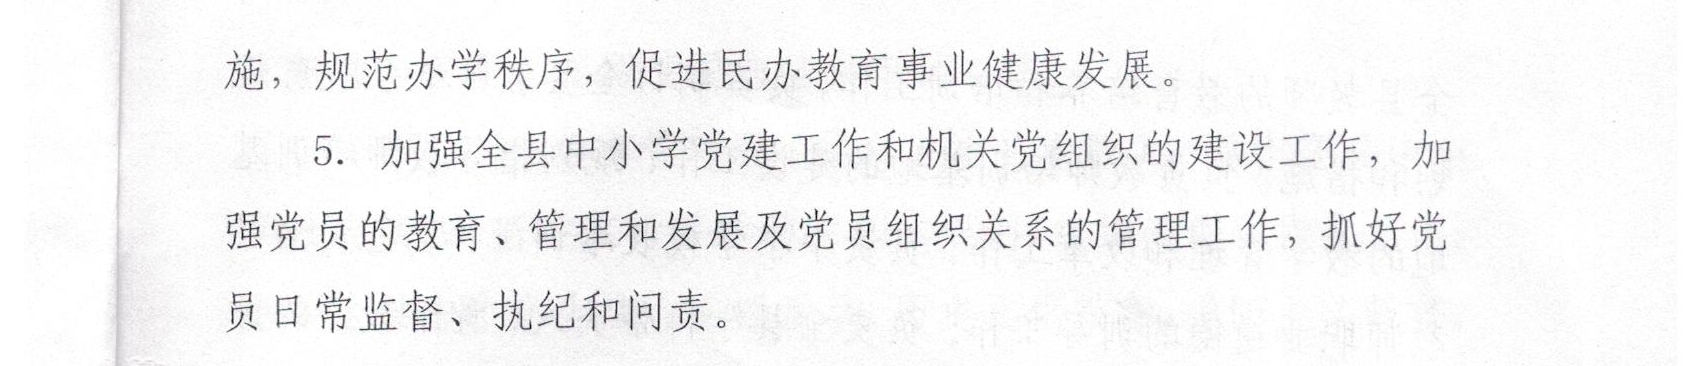 施，规范办学秩序，促进民办教育事业健康发展。
5. 加强全县中小学党建工作和机关党组织的建设工作，加
强党员的教育、管理和发展及党员组织关系的管理工作，抓好党
员日常监督、执纪和问责。